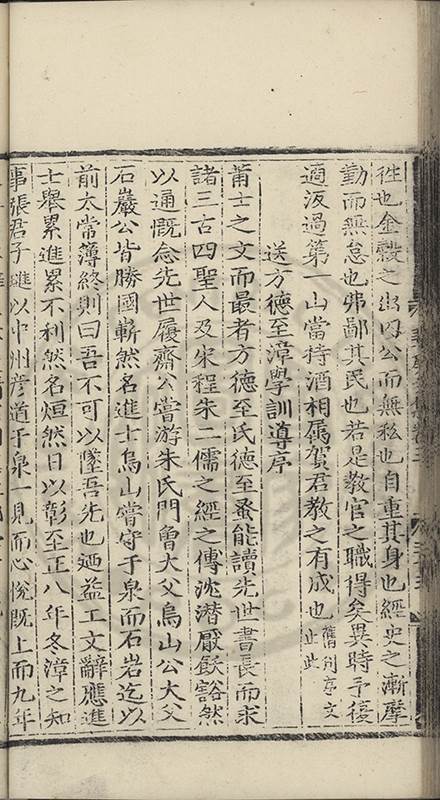 性也金穀之出內公而無私也自重其身也經史之漸摩
勤而無怠也弗鄙其民也若是教官之職得矣異時予復
適汳過第一山當持酒相属賀君教之有成也舊刻序文止此
送方德至漳學訓導序
莆士之文而最者方德至氏德至蚤能讀先世書長而求
諸三古四聖人及宋程朱二儒之經之傳沈潜厭飫豁然
以通慨念先世履齋公嘗游朱氏門曾大父烏山公大父
石巖公皆勝國嶄然名進士烏山嘗守于泉而石岩迄以
前太常薄終則曰吾不可以墜吾先也廼益工文辭應進
士舉累進累不利然名烜然日以彰至正八年冬漳之知
事張君子進以中州彦道于泉一見而心悅旣上而九年